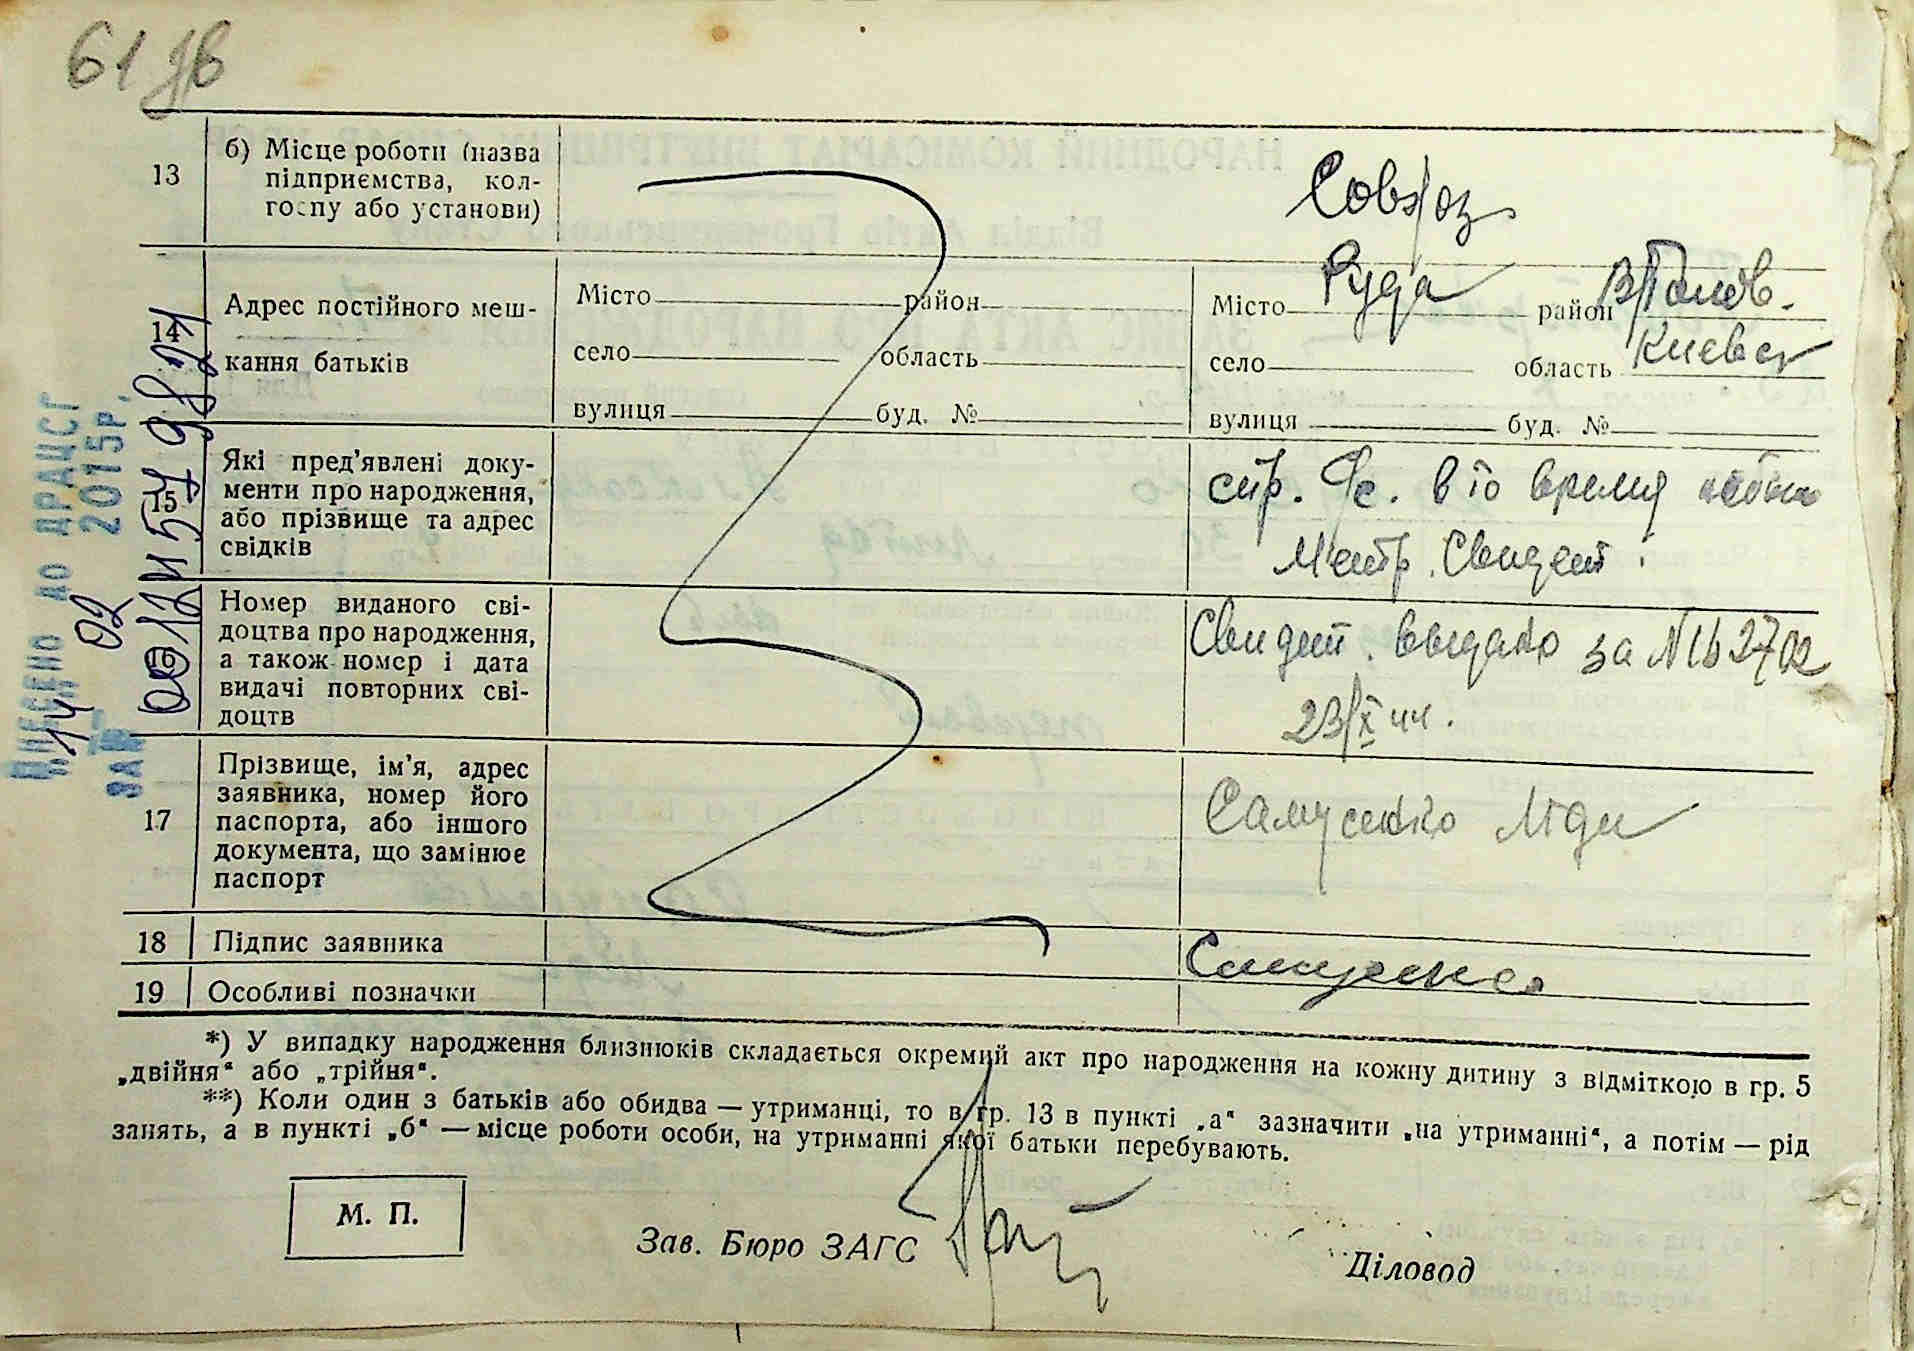 61 зв
13
б) Місце роботи (назва
підприємства, кол-
госпу або установи)
Совхоз
14
Адрес постійного меш-
кання батьків
Місто район
село область
вулиця буд. №
Місто Руда район
село область Киевск
вулиця буд. №
15
Які пред’явлені доку-
менти про народження,
або прізвище та адрес
свідків
спр. с/с. в то время
Метр. Свидет.
16
Номер виданого сві-
доцтва про народження,
а також номер і дата
видачі повторних сві-
доцтв
Свидет. выдано за №
23/X 44.
17
Прізвище, ім’я, адрес
заявника, номер його
паспорта, або іншого
документа, що замінює
паспорт
Самусенко Лиди
18 Підпис заявника
19 Особливі позначки
*) У випадку народження близнюків складається окремий акт про народження на кожну дитину з відміткою в гр. 5
„двійня“ або „трійня“.
**) Коли один з батьків або обидва — утриманці, то в гр. 13 в пункті „а“ зазначити „на утриманні“, а потім — рід
занять, а в пункті „б“ — місце роботи особи, на утриманні якої батьки перебувають.
М. П.
Зав. Бюро ЗАГС
Діловод
ВНЕСЕНО ДО ДРАЦСГ
"14" 02 2015р.
ЗА №